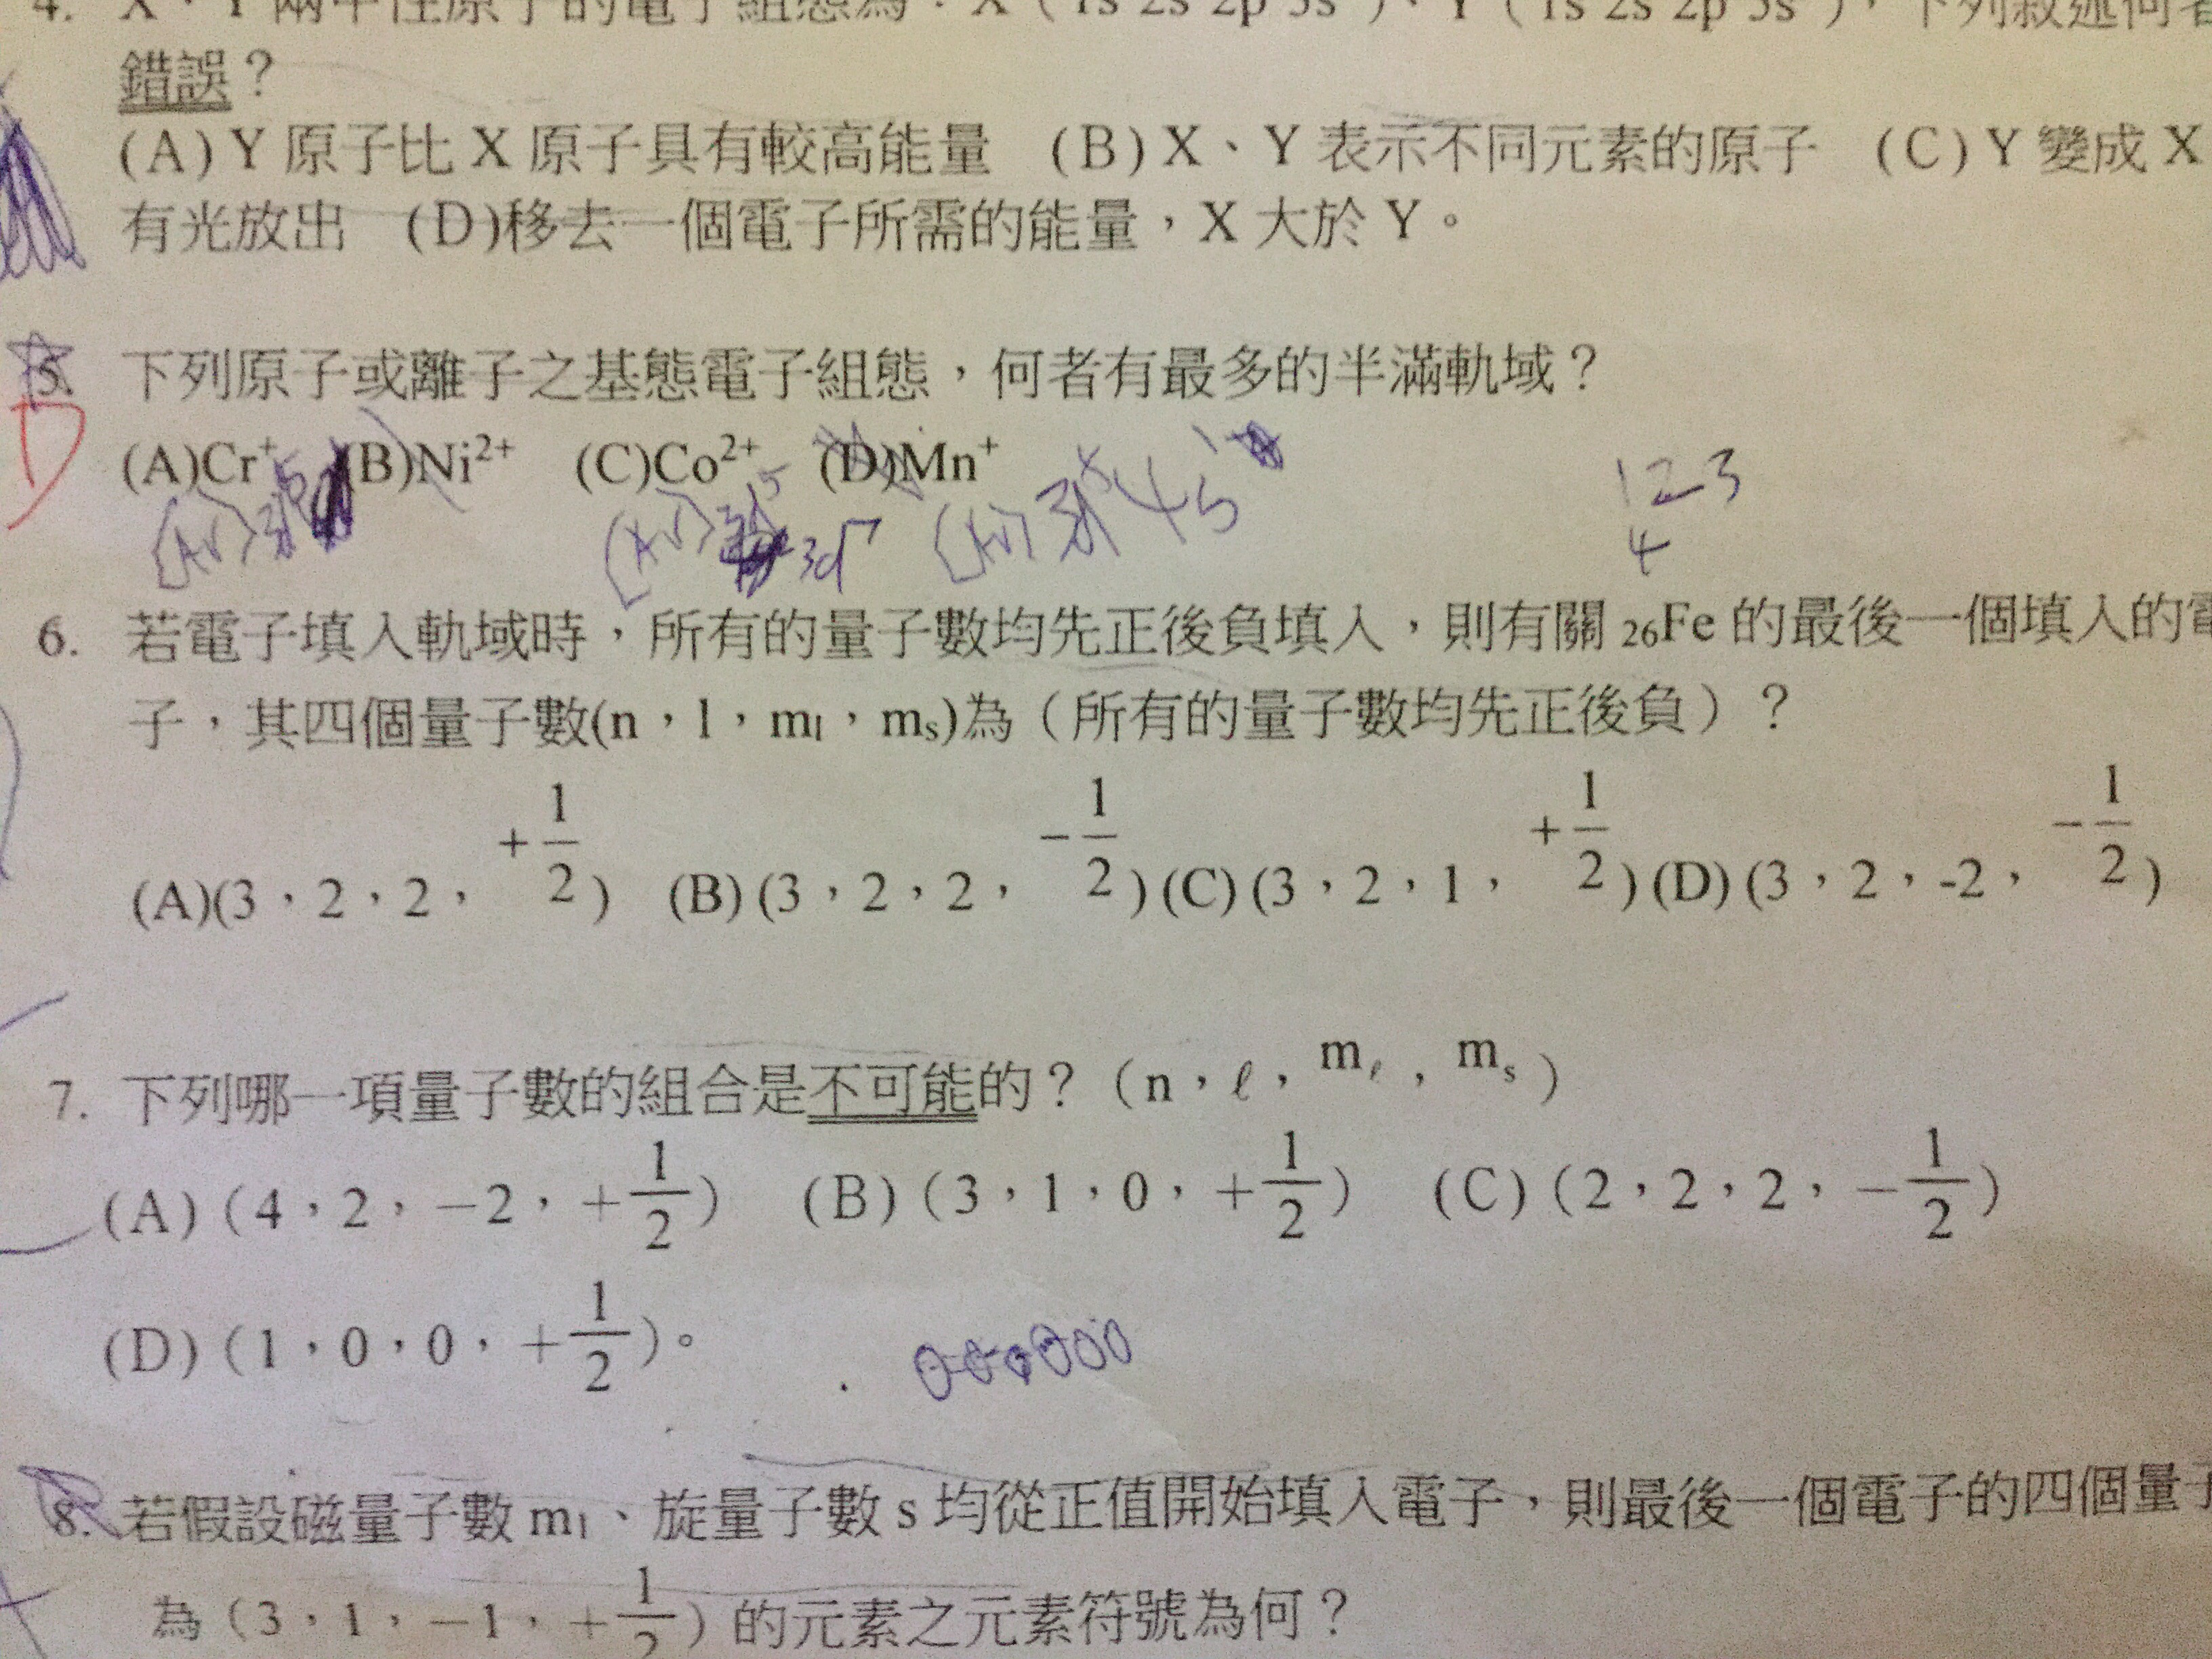 4. X、Y 兩中性原子的電子組態為：X（1s 2s 2p 3s ）、Y（1s 2s 2p 3s ），下列敘述何者
錯誤？
(A) Y 原子比 X 原子具有較高能量 (B) X、Y 表示不同元素的原子 (C) Y 變成 X
有光放出 (D)移去一個電子所需的能量，X 大於 Y。
5. 下列原子或離子之基態電子組態，何者有最多的半滿軌域？
D
(A)Cr⁺ (B)Ni²⁺ (C)Co²⁺ (D)Mn⁺
1 2 3
4
[Ar] 3d⁵ [Ar] 3d⁷ [Ar] 3d⁵ 4s¹
6. 若電子填入軌域時，所有的量子數均先正後負填入，則有關 ₂₆Fe 的最後一個填入的電
子，其四個量子數(n，l，mₗ，mₛ)為（所有的量子數均先正後負）？
(A)(3，2，2，+1/2) (B)(3，2，2，−1/2) (C)(3，2，1，+1/2) (D)(3，2，-2，−1/2)
7. 下列哪一項量子數的組合是不可能的？（n，ℓ，mℓ，mₛ）
(A)（4，2，−2，+1/2） (B)（3，1，0，+1/2） (C)（2，2，2，−1/2）
(D)（1，0，0，+1/2）。
8. 若假設磁量子數 mₗ、旋量子數 s 均從正值開始填入電子，則最後一個電子的四個量子
為（3，1，−1，+1/2）的元素之元素符號為何？